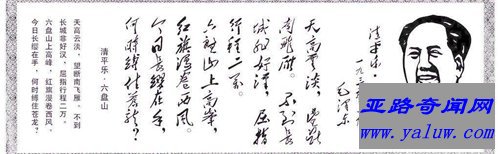 清平乐·
毛泽东
天高云淡 望断
南飞雁。不到长
城非好汉 屈指
行程二万。
六盘山上高峰，
红旗漫卷西风。
今日长缨在手，
何时缚住苍龙？
清平乐·六盘山
天高云淡，望断南飞雁。不到
长城非好汉，屈指行程二万。
六盘山上高峰，红旗漫卷西风。
今日长缨在手，何时缚住苍龙？
亚路奇闻网
www.yaluw.com